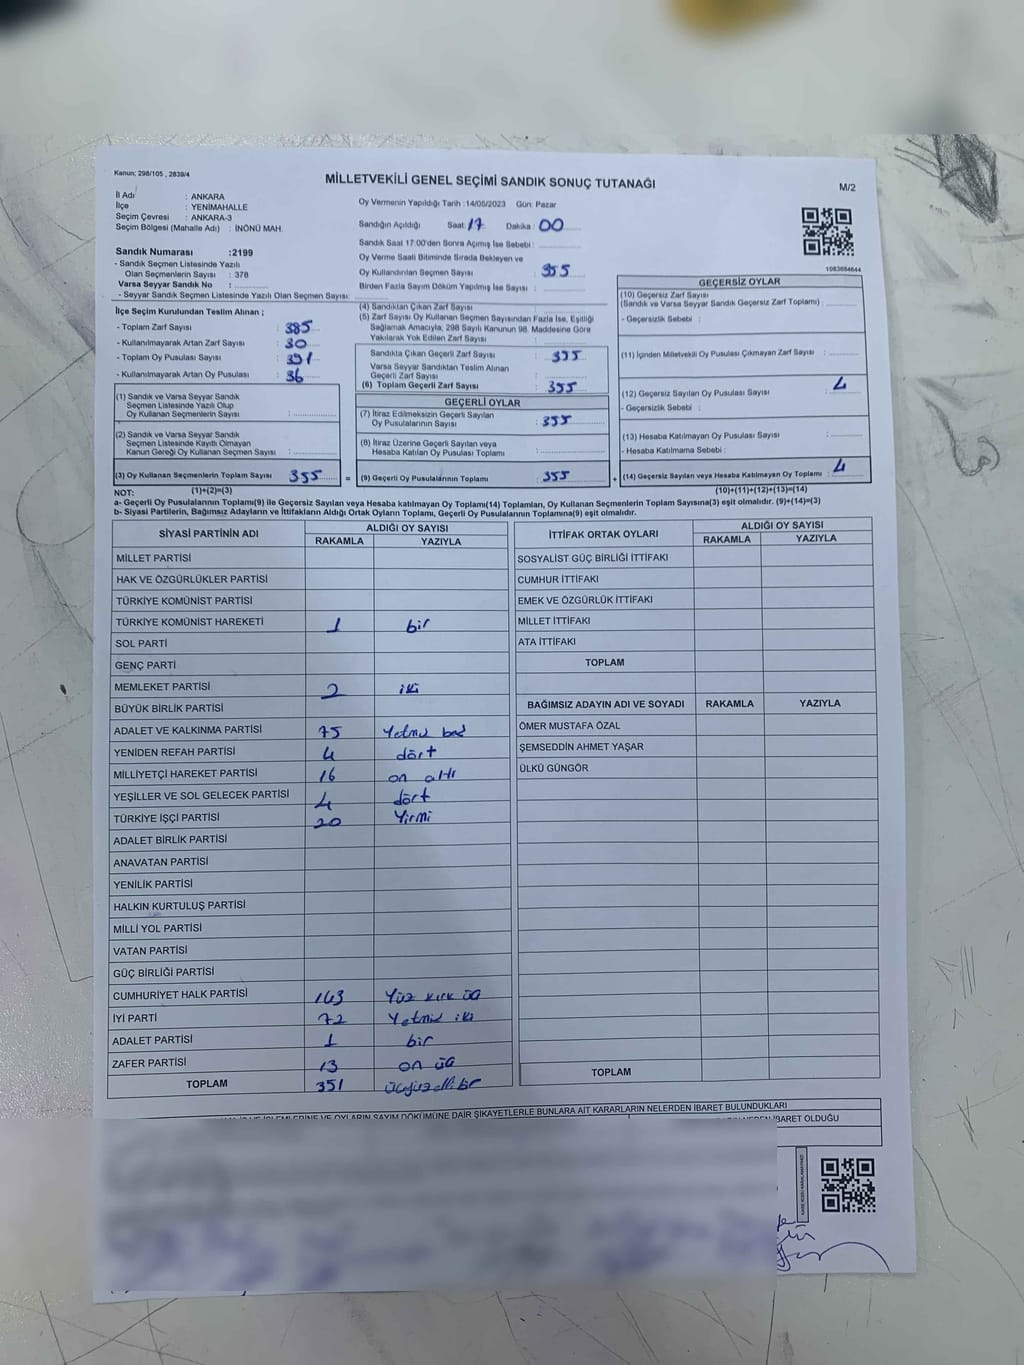 Kanun: 298/105 , 2839/4
MİLLETVEKİLİ GENEL SEÇİMİ SANDIK SONUÇ TUTANAĞI
M/2
İl Adı : ANKARA
İlçe : YENİMAHALLE
Seçim Çevresi : ANKARA-3
Seçim Bölgesi (Mahalle Adı) : İNÖNÜ MAH.
Sandık Numarası :2199
- Sandık Seçmen Listesinde Yazılı
Olan Seçmenlerin Sayısı : 378
Varsa Seyyar Sandık No :
- Seyyar Sandık Seçmen Listesinde Yazılı Olan Seçmen Sayısı
Oy Vermenin Yapıldığı Tarih :14/05/2023 Gün: Pazar
Sandığın Açıldığı Saat: 17 Dakika : 00
Sandık Saat 17:00'den Sonra Açımış İse Sebebi :
Oy Verme Saati Bitiminde Sırada Bekleyen ve
Oy Kullandırılan Seçmen Sayısı 355
Birden Fazla Sayım Döküm Yapılmış İse Sayısı :
1083684644
İlçe Seçim Kurulundan Teslim Alınan ;
- Toplam Zarf Sayısı : 385
- Kullanılmayarak Artan Zarf Sayısı : 30
- Toplam Oy Pusulası Sayısı : 391
- Kullanılmayarak Artan Oy Pusulası : 36
(1) Sandık ve Varsa Seyyar Sandık
Seçmen Listesinde Yazılı Olup
Oy Kullanan Seçmenlerin Sayısı :
(2) Sandık ve Varsa Seyyar Sandık
Seçmen Listesinde Kayıtlı Olmayan
Kanun Gereği Oy Kullanan Seçmen Sayısı :
(3) Oy Kullanan Seçmenlerin Toplam Sayısı 355 =
(4) Sandıktan Çıkan Zarf Sayısı
(5) Zarf Sayısı Oy Kullanan Seçmen Sayısından Fazla İse, Eşitliği
Sağlamak Amacıyla, 298 Sayılı Kanunun 98. Maddesine Göre
Yakılarak Yok Edilen Zarf Sayısı :
Sandıkta Çıkan Geçerli Zarf Sayısı : 355
Varsa Seyyar Sandıktan Teslim Alınan
Geçerli Zarf Sayısı :
(6) Toplam Geçerli Zarf Sayısı : 355
GEÇERLİ OYLAR
(7) İtiraz Edilmeksizin Geçerli Sayılan
Oy Pusulalarının Sayısı : 355
(8) İtiraz Üzerine Geçerli Sayılan veya
Hesaba Katılan Oy Pusulası Toplamı :
(9) Geçerli Oy Pusulalarının Toplamı : 355 +
GEÇERSİZ OYLAR
(10) Geçersiz Zarf Sayısı
(Sandık ve Varsa Seyyar Sandık Geçersiz Zarf Toplamı) :
- Geçersizlik Sebebi :
(11) İçinden Milletvekili Oy Pusulası Çıkmayan Zarf Sayısı :
(12) Geçersiz Sayılan Oy Pusulası Sayısı : 4
- Geçersizlik Sebebi :
(13) Hesaba Katılmayan Oy Pusulası Sayısı :
- Hesaba Katılmama Sebebi :
(14) Geçersiz Sayılan veya Hesaba Katılmayan Oy Toplamı : 4
NOT: (1)+(2)=(3) (10)+(11)+(12)+(13)=(14)
a- Geçerli Oy Pusulalarının Toplamı(9) ile Geçersiz Sayılan veya Hesaba katılmayan Oy Toplamı(14) Toplamları, Oy Kullanan Seçmenlerin Toplam Sayısına(3) eşit olmalıdır. (9)+(14)=(3)
b- Siyasi Partilerin, Bağımsız Adayların ve İttifakların Aldığı Ortak Oyların Toplamı, Geçerli Oy Pusulalarının Toplamına(9) eşit olmalıdır.
SİYASİ PARTİNİN ADI ALDIĞI OY SAYISI
RAKAMLA YAZIYLA
MİLLET PARTİSİ
HAK VE ÖZGÜRLÜKLER PARTİSİ
TÜRKİYE KOMÜNİST PARTİSİ
TÜRKİYE KOMÜNİST HAREKETİ 1 bir
SOL PARTİ
GENÇ PARTİ
MEMLEKET PARTİSİ 2 iki
BÜYÜK BİRLİK PARTİSİ
ADALET VE KALKINMA PARTİSİ 75 Yetmiş beş
YENİDEN REFAH PARTİSİ 4 dört
MİLLİYETÇİ HAREKET PARTİSİ 16 on altı
YEŞİLLER VE SOL GELECEK PARTİSİ 4 dört
TÜRKİYE İŞÇİ PARTİSİ 20 Yirmi
ADALET BİRLİK PARTİSİ
ANAVATAN PARTİSİ
YENİLİK PARTİSİ
HALKIN KURTULUŞ PARTİSİ
MİLLİ YOL PARTİSİ
VATAN PARTİSİ
GÜÇ BİRLİĞİ PARTİSİ
CUMHURİYET HALK PARTİSİ 143 Yüz kırk üç
İYİ PARTİ 72 Yetmiş iki
ADALET PARTİSİ 1 bir
ZAFER PARTİSİ 13 on üç
TOPLAM 351 üçyüzellibir
İTTİFAK ORTAK OYLARI ALDIĞI OY SAYISI
RAKAMLA YAZIYLA
SOSYALİST GÜÇ BİRLİĞİ İTTİFAKI
CUMHUR İTTİFAKI
EMEK VE ÖZGÜRLÜK İTTİFAKI
MİLLET İTTİFAKI
ATA İTTİFAKI
TOPLAM
BAĞIMSIZ ADAYIN ADI VE SOYADI RAKAMLA YAZIYLA
ÖMER MUSTAFA ÖZAL
ŞEMSEDDİN AHMET YAŞAR
ÜLKÜ GÜNGÖR
TOPLAM
İŞLEMLERİNE VE OYLARIN SAYIM DÖKÜMÜNE DAİR ŞİKAYETLERLE BUNLARA AİT KARARLARIN NELERDEN İBARET BULUNDUKLARI
İBARET OLDUĞU